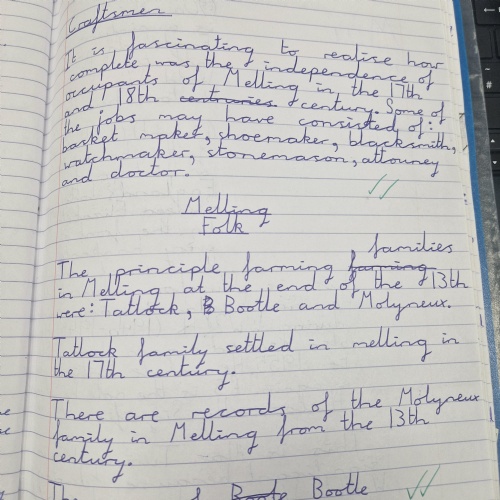 Craftsmen
It is fascinating to realise how
complete was the independence of
occupants of Melling in the 17th
and 18th centuries century. Some of
the jobs may have consisted of:
basket maker, shoemaker, blacksmith,
watchmaker, stonemason, attourney
and doctor.
Melling
Folk
families
The principle farming farming
in Melling at the end of the 13th
were: Tatlock, B Bootle and Molyneux.
Tatlock family settled in melling in
the 17th century.
There are records of the Molyneux
family in Melling from the 13th
century.
of Boote Bootle